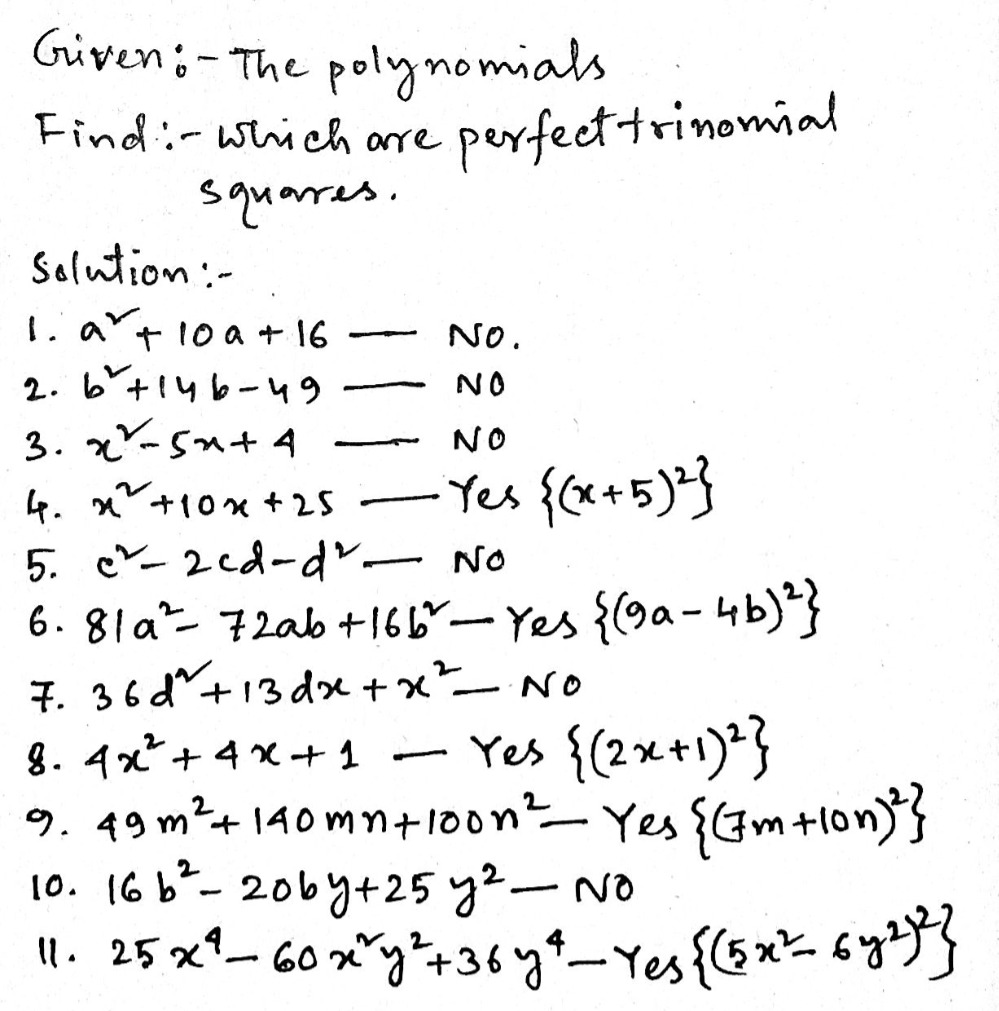 Given:- The polynomials
Find:- which are perfect trinomial
squares.
Solution:-
1. a² + 10a + 16 — NO.
2. b² + 14b - 49 — NO
3. x² - 5x + 4 — NO
4. x² + 10x + 25 — Yes {(x+5)²}
5. c² - 2cd - d² — NO
6. 81a² - 72ab + 16b² — Yes {(9a - 4b)²}
7. 36d² + 13dx + x² — NO
8. 4x² + 4x + 1 — Yes {(2x+1)²}
9. 49m² + 140mn + 100n² — Yes {(7m+10n)²}
10. 16b² - 20by + 25y² — NO
11. 25x⁴ - 60x²y² + 36y⁴ — Yes {(5x² - 6y²)²}